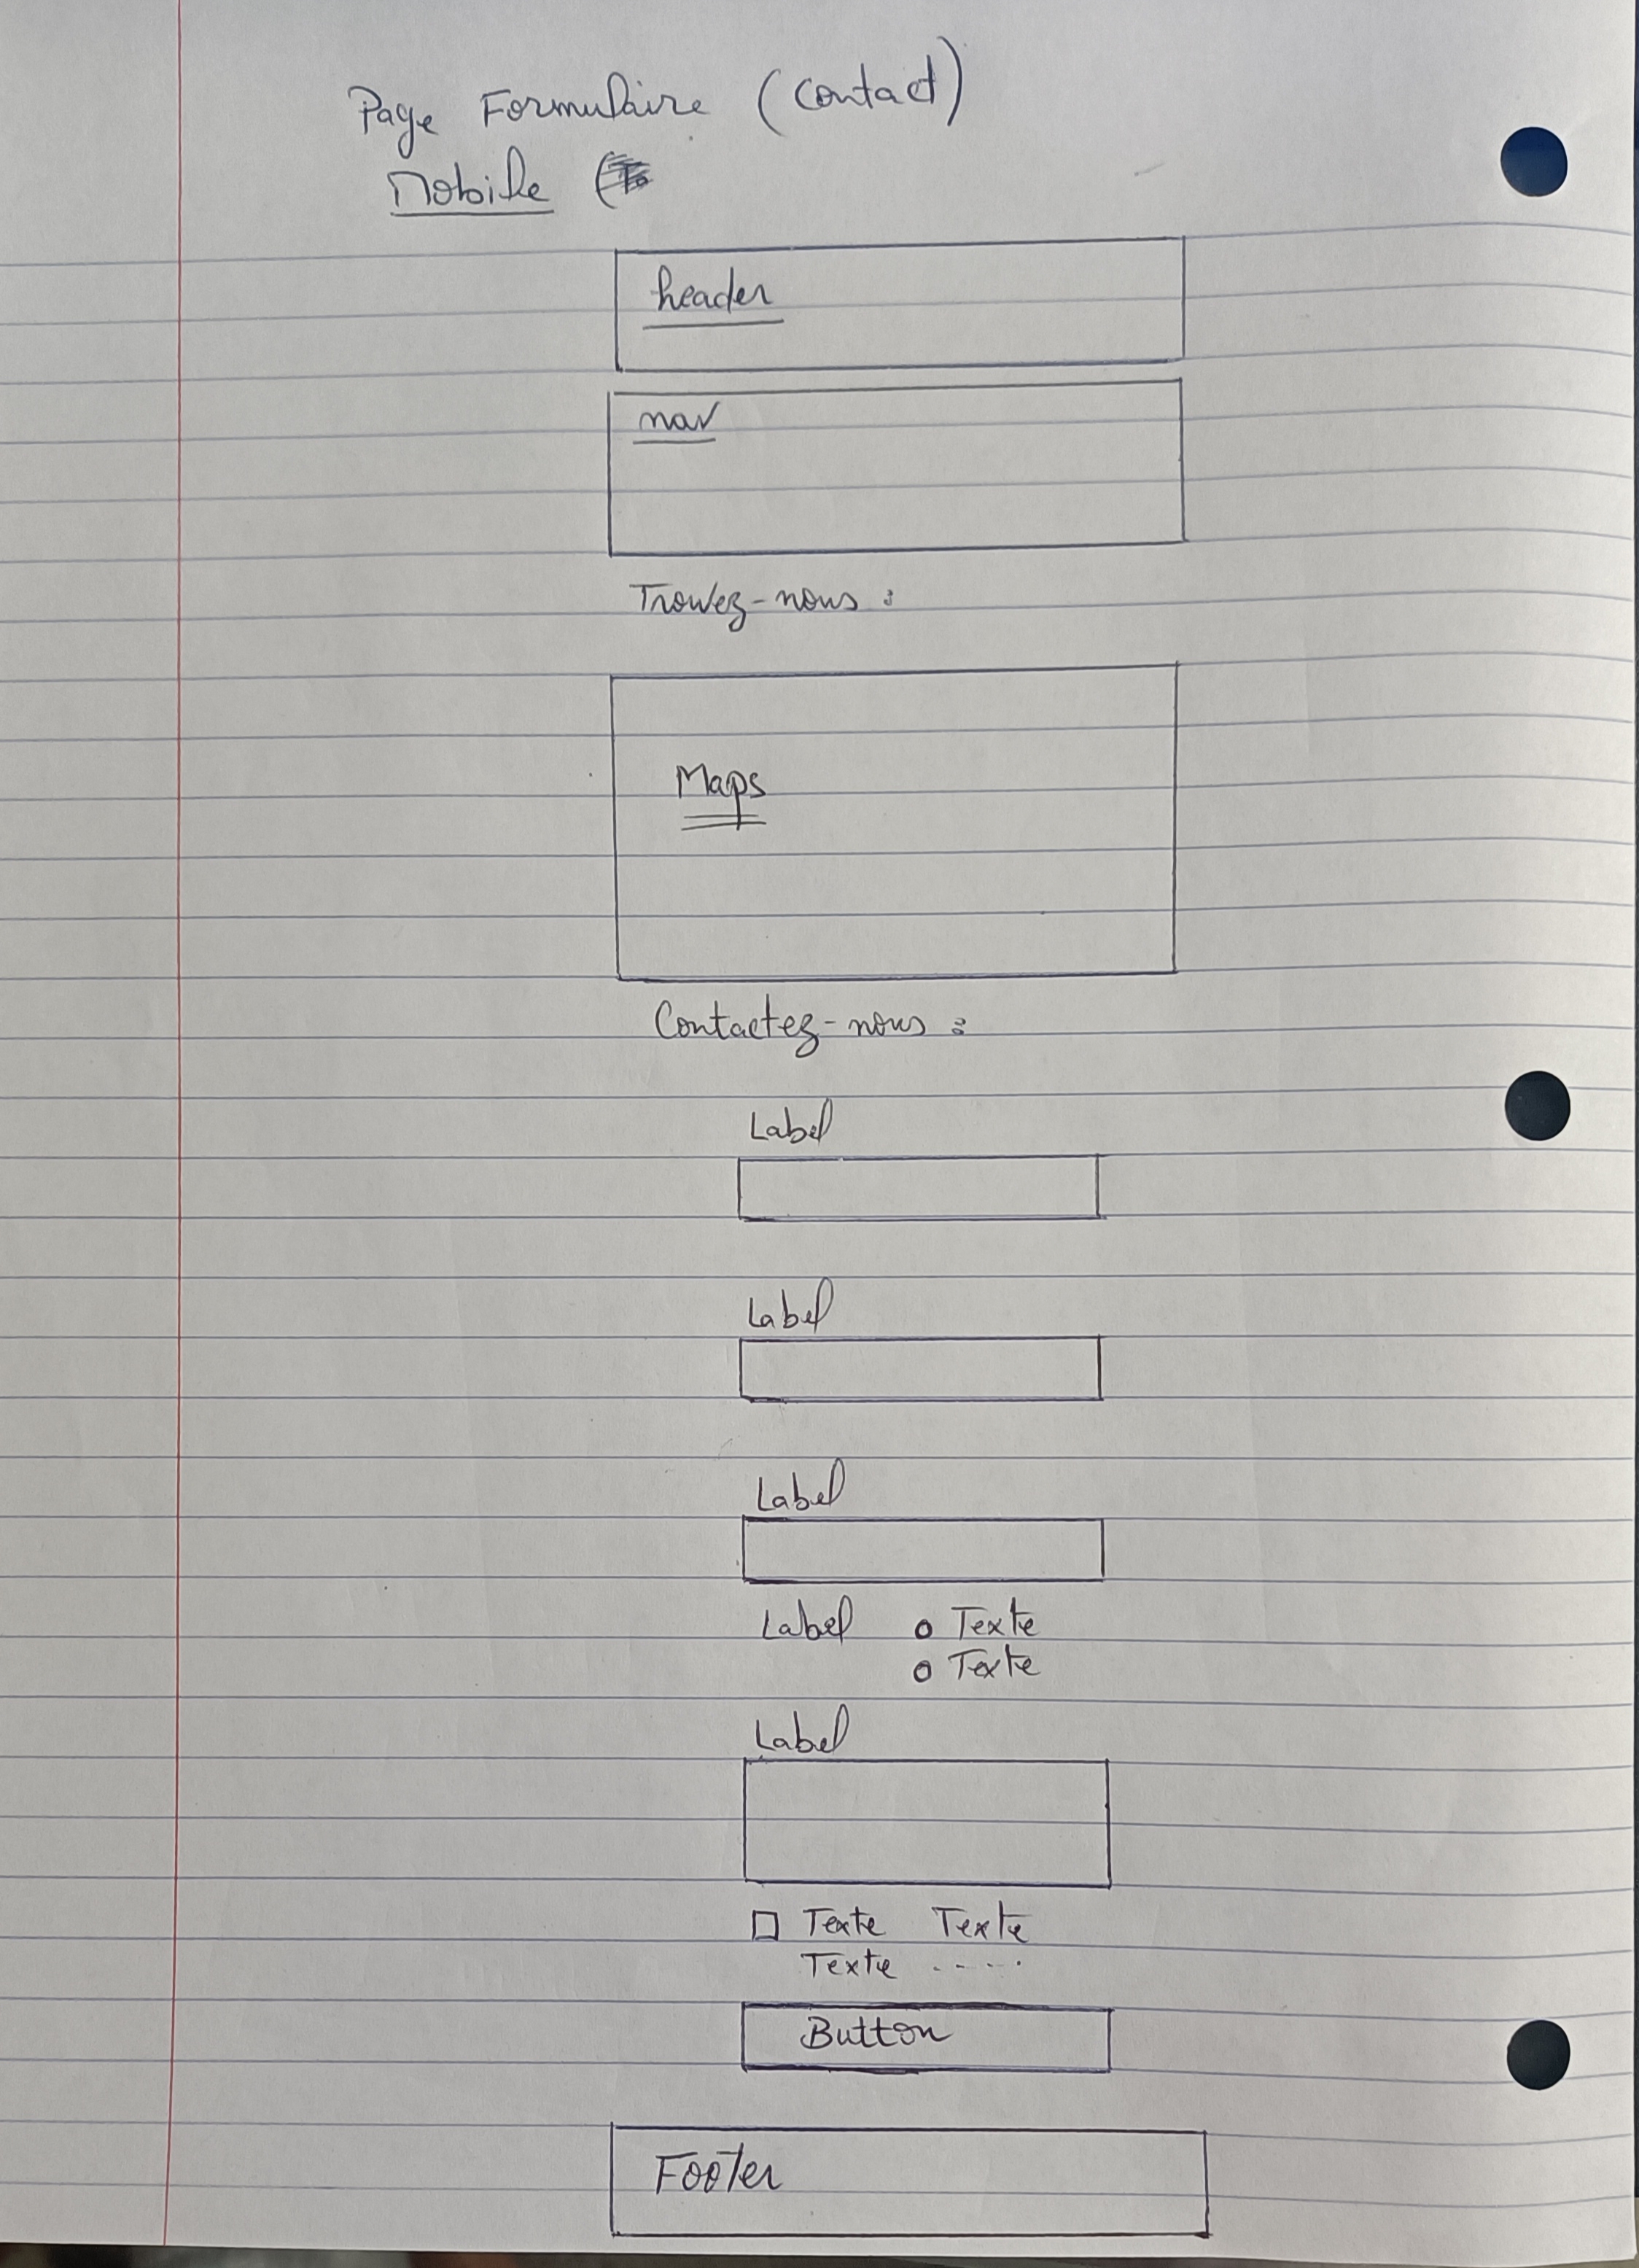 Page Formulaire (contact)
Mobile (
header
nav
Trouvez-nous :
Maps
Contactez-nous :
Label
Label
Label
Label o Texte
o Texte
Label
Texte Texte
Texte .....
Button
Footer